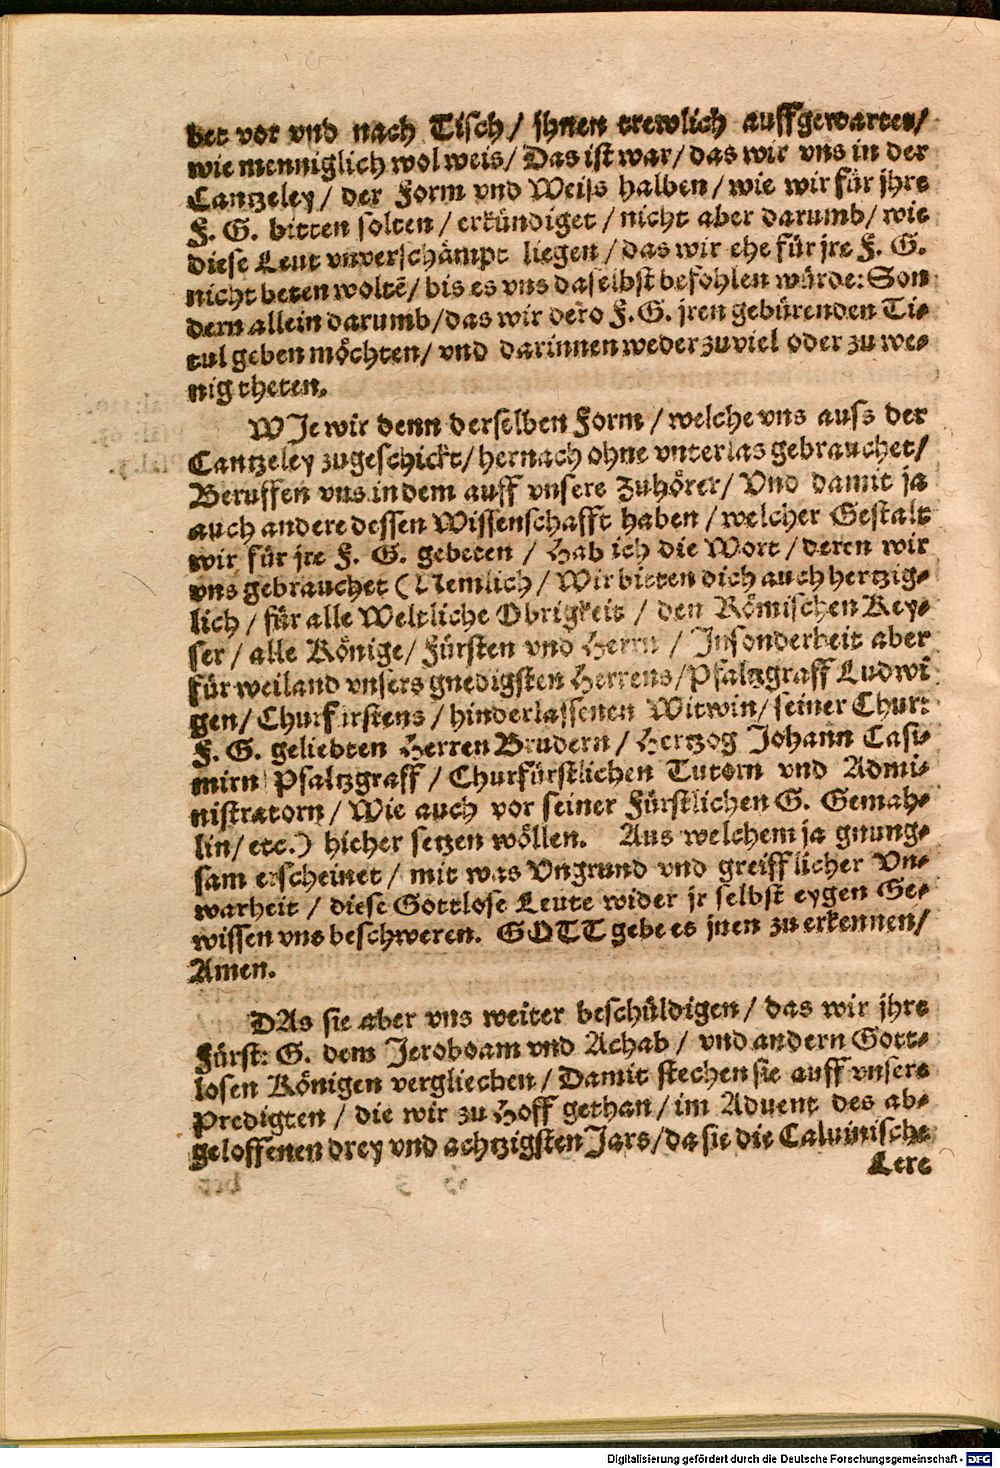 bet vor vnd nach Tisch / jhnen trewlich auffgewartet /
wie menniglich wol weis / Das ist war / das wir vns in der
Cantzeley / der Form vnd Weiß halben / wie wir für jhre
F. G. bitten solten / erkündiget / nicht aber darumb / wie
diese Leut vnverschämpt liegen / das wir ehe für jre F. G.
nicht beten woltē / bis es vns daselbst befohlen würde: Son
dern allein darumb / das wir dero F. G. jren gebürenden Ti-
tul geben möchten / vnd darinnen weder zuviel oder zu we-
nig theten.
WJe wir denn derselben Form / welche vns auß der
Cantzeley zugeschickt / hernach ohne vnterlas gebrauchet /
Beruffen vns in dem auff vnsere Zuhörer / Vnd damit ja
auch andere dessen Wissenschafft haben / welcher Gestalt
wir für jre F. G. gebeten / Hab ich die Wort / deren wir
vns gebrauchet (Nemlich / Wir bitten dich auch hertzig-
lich / für alle Weltliche Obrigkeit / den Römischen Key-
ser / alle Könige / Fürsten vnd Herrn / Insonderheit aber
für weiland vnsers gnedigsten Herrens / Pfaltzgraff Ludwi
gen / Churfürstens / hinderlassenen Witwin / seiner Churf
F. G. geliebten Herren Brudern / Hertzog Johann Casi-
mirn Pfaltzgraff / Churfürstlichen Tutorn vnd Admi-
nistratorn / Wie auch vor seiner Fürstlichen G. Gemah-
lin / etc.) hieher setzen wöllen. Aus welchem ja gnung-
sam erscheinet / mit was Vngrund vnd greifflicher Vn-
warheit / diese Gottlose Leute wider jr selbst eygen Ge-
wissen vns beschweren. GOTT gebe es jnen zu erkennen /
Amen.
DAs sie aber vns weiter beschüldigen / das wir jhre
Fürst: G. dem Jeroboam vnd Achab / vnd andern Gott-
losen Königen vergliechen / Damit stechen sie auff vnsere
Predigten / die wir zu Hoff gethan / im Aduent des ab-
geloffenen drey vnd achtzigsten Jars / da sie die Caluinische
Lere
Digitalisierung gefördert durch die Deutsche Forschungsgemeinschaft - DFG